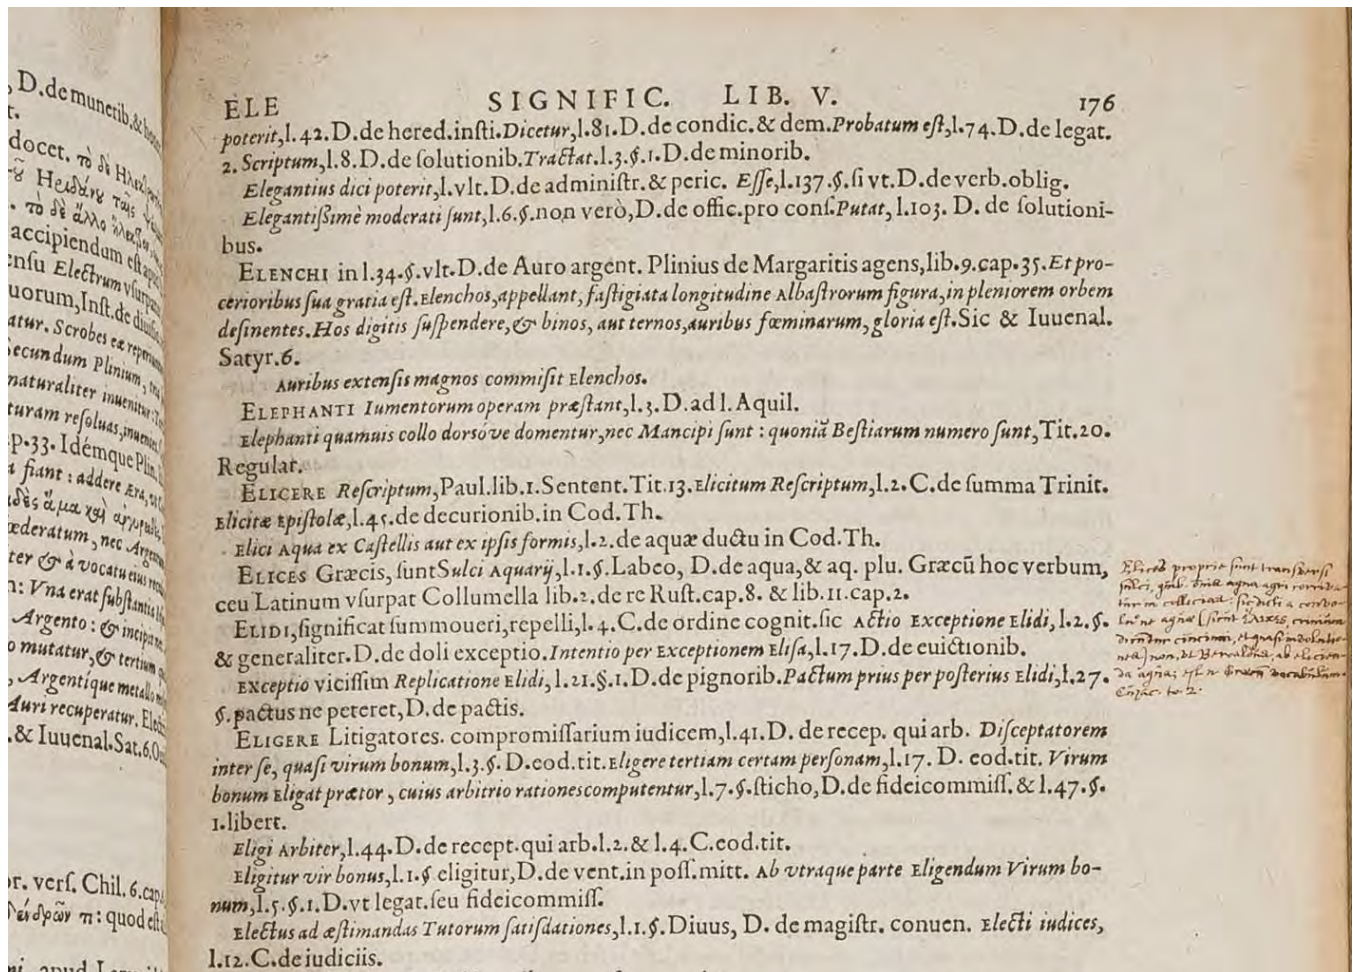 , D. de munerib. &
docet. τὸ δὲ
accipiendum est
Electrum
uorum, Inst. de
atur. Scrobes eæ
Secundum Plinium,
naturaliter inuenitur:
turam resoluas,
p. 33. Idémque Plin.
fiant: addere Æra,
ἅμα καὶ
œderatum, nec
ter & à vocatu eius
n: Vna erat substantia
Argento: & incipi
o mutatur, & tertium
, Argentíque metallo
Auri recuperatur.
. & Iuuenal. Sat. 6.
or. vers. Chil. 6. cap.
τι: quod est
ELE SIGNIFIC. LIB. V. 176
poterit, l. 42. D. de hered. insti. Dicetur, l. 81. D. de condic. & dem. Probatum est, l. 74. D. de legat.
2. Scriptum, l. 8. D. de solutionib. Tractat. l. 3. §. 1. D. de minorib.
Elegantius dici poterit, l. vlt. D. de administr. & peric. Esse, l. 137. §. si vt. D. de verb. oblig.
Elegantißimè moderati sunt, l. 6. §. non verò, D. de offic. pro cons. Putat, l. 103. D. de solutioni-
bus.
ELENCHI in l. 34. §. vlt. D. de Auro argent. Plinius de Margaritis agens, lib. 9. cap. 35. Et pro-
cerioribus sua gratia est. Elenchos, appellant, fastigiata longitudine Albastrorum figura, in pleniorem orbem
desinentes. Hos digitis suspendere, & binos, aut ternos, auribus fœminarum, gloria est. Sic & Iuuenal.
Satyr. 6.
Auribus extensis magnos commisit Elenchos.
ELEPHANTI Iumentorum operam præstant, l. 3. D. ad l. Aquil.
Elephanti quamuis collo dorsóve domentur, nec Mancipi sunt: quoniā Bestiarum numero sunt, Tit. 20.
Regulat.
ELICERE Rescriptum, Paul. lib. 1. Sentent. Tit. 13. Elicitum Rescriptum, l. 2. C. de summa Trinit.
Elicitæ Epistolæ, l. 45. de decurionib. in Cod. Th.
Elici Aqua ex Castellis aut ex ipsis formis, l. 2. de aquæ ductu in Cod. Th.
ELICES Græcis, sunt Sulci Aquarij, l. 1. §. Labeo, D. de aqua, & aq. plu. Græcū hoc verbum,
ceu Latinum vsurpat Collumella lib. 2. de re Rust. cap. 8. & lib. 11. cap. 2.
ELIDI, significat summoueri, repelli, l. 4. C. de ordine cognit. sic Actio Exceptione Elidi, l. 2. §.
& generaliter. D. de doli exceptio. Intentio per Exceptionem Elisa, l. 17. D. de euictionib.
Exceptio vicissim Replicatione Elidi, l. 21. §. 1. D. de pignorib. Pactum prius per posterius Elidi, l. 27.
§. pactus ne peteret, D. de pactis.
ELIGERE Litigatores. compromissarium iudicem, l. 41. D. de recep. qui arb. Disceptatorem
inter se, quasi virum bonum, l. 3. §. D. eod. tit. Eligere tertiam certam personam, l. 17. D. eod. tit. Virum
bonum Eligat prætor, cuius arbitrio rationes computentur, l. 7. §. sticho, D. de fideicommiss. & l. 47. §.
1. libert.
Eligi Arbiter, l. 44. D. de recept. qui arb. l. 2. & l. 4. C. eod. tit.
Eligitur vir bonus, l. 1. § eligitur, D. de vent. in poss. mitt. Ab vtraque parte Eligendum Virum bo-
num, l. 5. §. 1. D. vt legat. seu fideicommiss.
Electus ad æstimandas Tutorum satisdationes, l. 1. §. Diuus, D. de magistr. conuen. Electi iudices,
l. 12. C. de iudiciis.
Elices proprie sunt transversi
sulci,